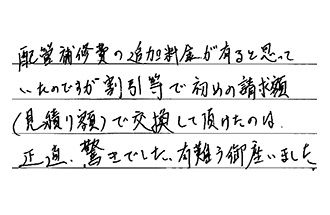 配管補修費の追加料金が有ると思って
いたのですが割引等で初めの請求額
(見積り額)で交換して頂けたのは、
正直、驚きでした。有難う御座いました